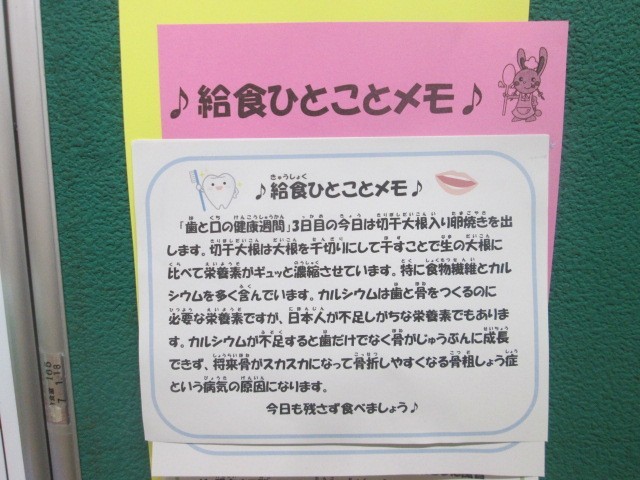 ♪給食ひとことメモ♪
♪給食ひとことメモ♪
「歯と口の健康週間」3日目の今日は切干大根入り卵焼きを出
します。切干大根は大根を千切りにして干すことで生の大根に
比べて栄養素がギュッと濃縮させています。特に食物繊維とカル
シウムを多く含んでいます。カルシウムは歯と骨をつくるのに
必要な栄養素ですが、日本人が不足しがちな栄養素でもありま
す。カルシウムが不足すると歯だけでなく骨がじゅうぶんに成長
できず、将来骨がスカスカになって骨折しやすくなる骨粗しょう症
という病気の原因になります。
今日も残さず食べましょう♪